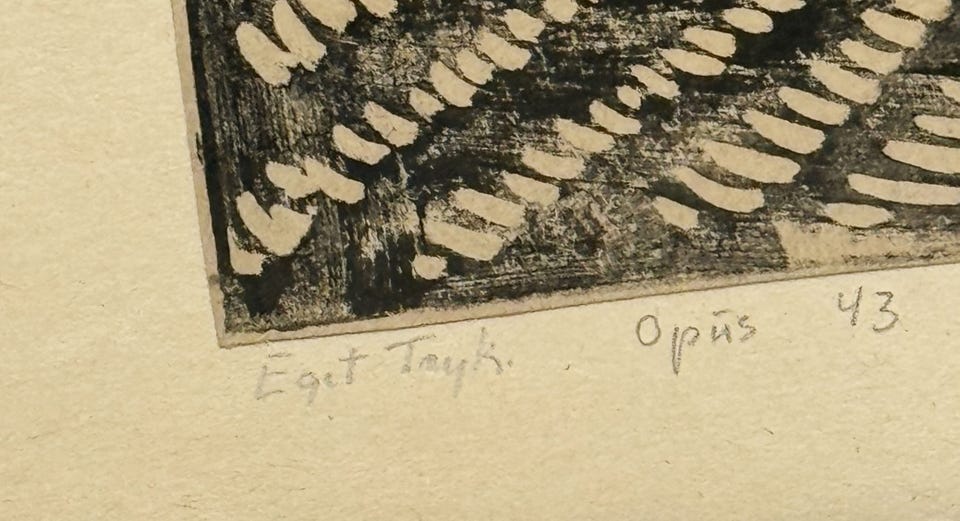 Eget Tryk. Opus 43